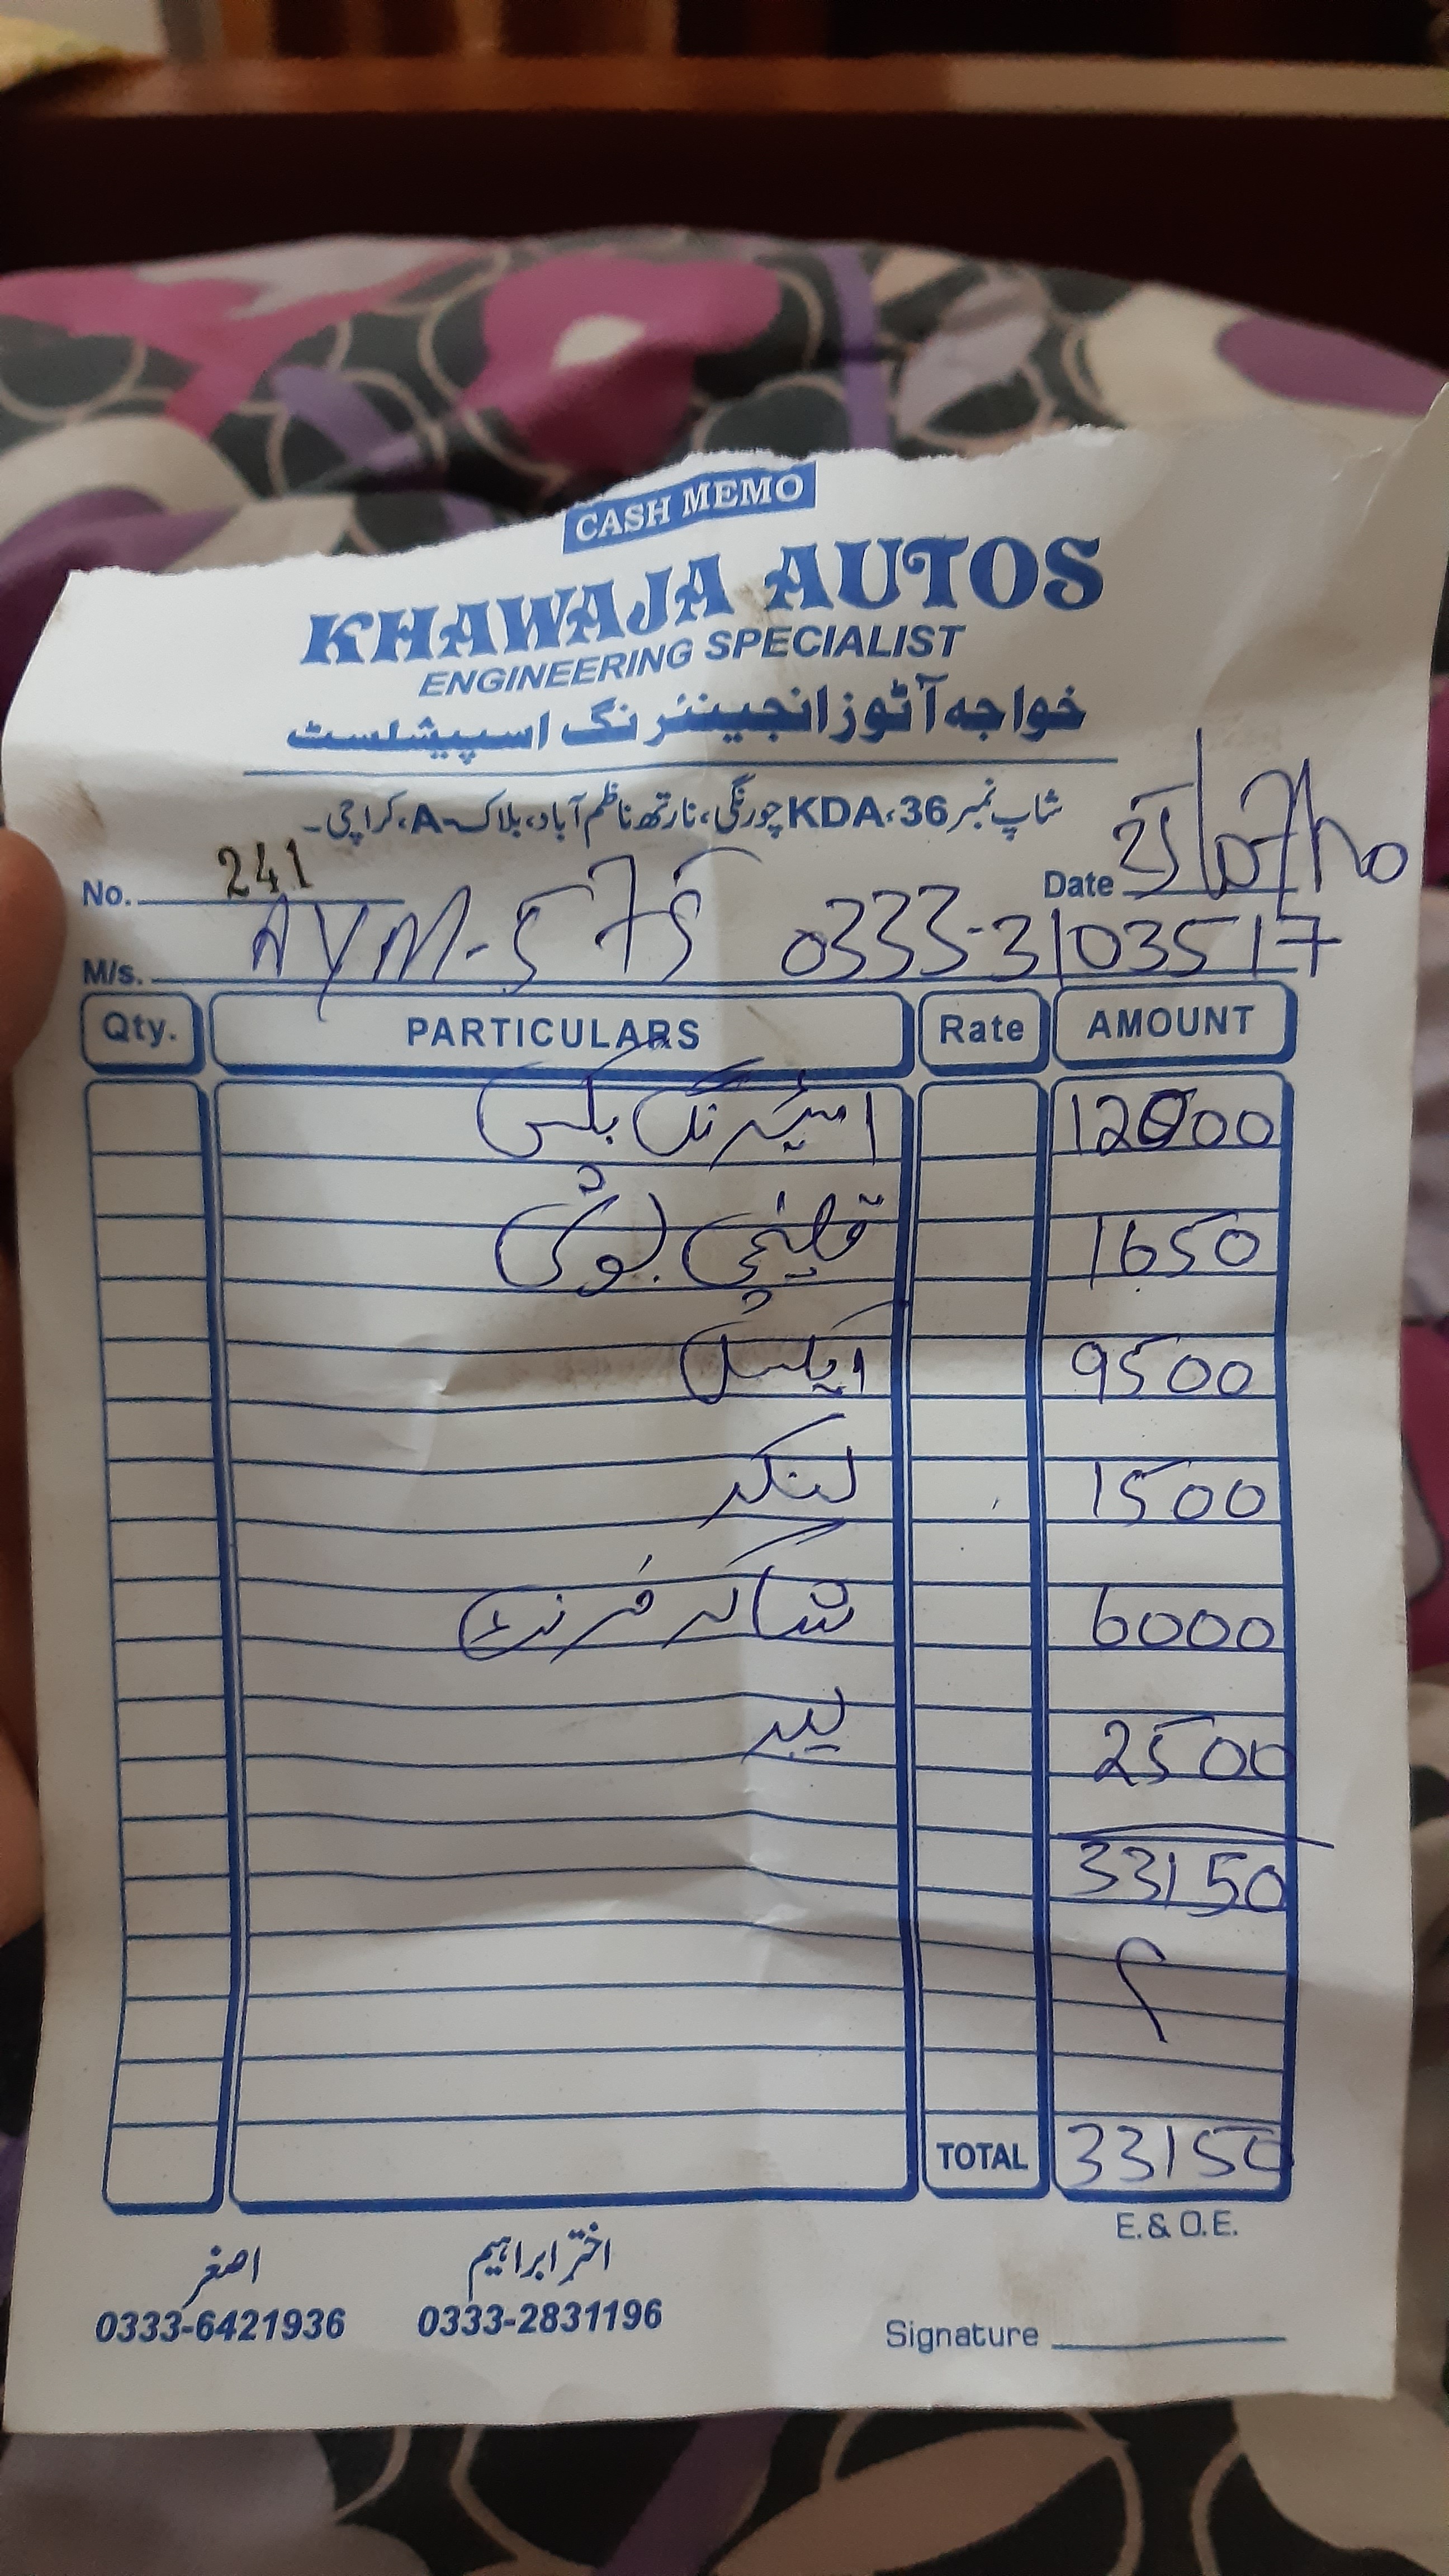 CASH MEMO
KHAWAJA AUTOS
ENGINEERING SPECIALIST
خواجہ آٹوز انجینئرنگ اسپیشلسٹ
شاپ نمبر 36، KDA چورنگی، نارتھ ناظم آباد، بلاک-A، کراچی۔
No. 241 Date
M/s. AYM-575 0333-3103517
Qty. PARTICULARS Rate AMOUNT
اسٹیرنگ بکس 12000
قینچی بوش 1650
ایکسل 9500
لنکر 1500
شاکر فرنٹ 6000
لیبر 2500
33150
TOTAL 33150
E. & O.E.
اصغر اختر ابراہیم
0333-6421936 0333-2831196
Signature